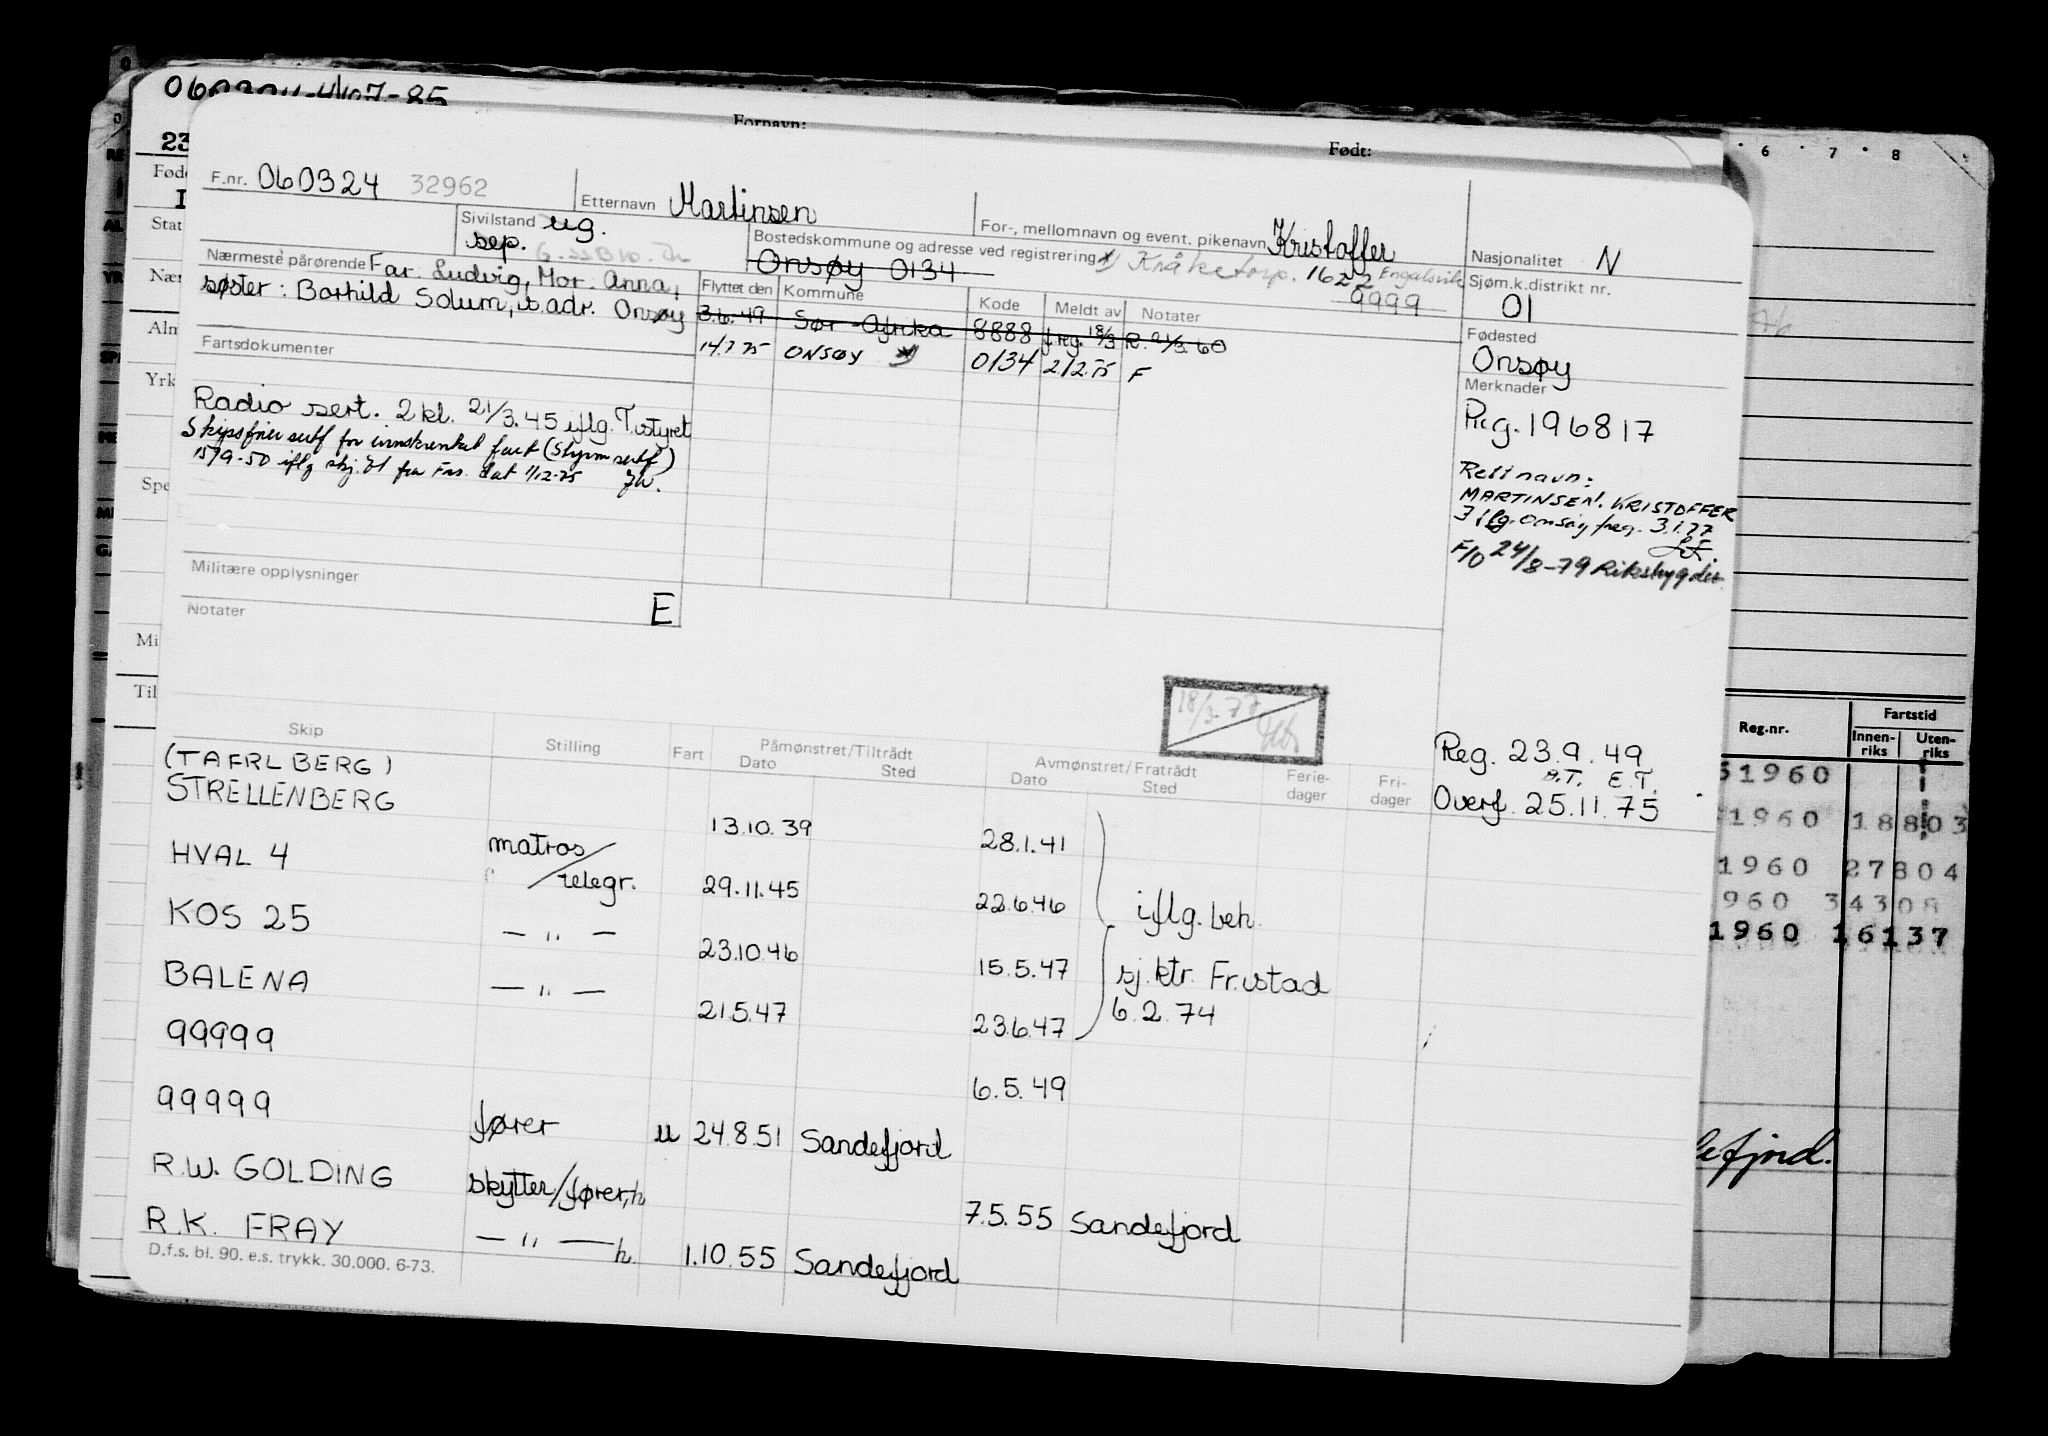 Fornavn:
Født:
F.nr. 060324 32962
Etternavn Martinsen
For-, mellomnavn og event. pikenavn Kristoffer
Nasjonalitet N
Sivilstand ug.
sep.
Bostedskommune og adresse ved registrering
Onsøy 0134
Kråketorp. 1622 Engalsvik
9999
Sjøm.k.distrikt nr.
01
Nærmeste pårørende Far: Ludvig, Mor: Anna,
søster: Borhild Solum, s. adr. Onsøy
Flyttet den Kommune Kode Meldt av Notater
3.6.49 Sør-Afrika 8888 freg. 18/3 R. 21/3.60
14.7.75 ONSØY 0134 21275 F
Fødested
Onsøy
Merknader
Reg. 196817
Rett navn:
MARTINSEN, KRISTOFFER
Iflg. Onsøy freg. 3.1.77
F/O 24/8-79 Riksbygder
Fartsdokumenter
Radio sert. 2 kl. 21/3.45 iflg. T.styret
Skipsfører sertf for innskrenket fart (Styrm sertf)
15/9-50 iflg skj. 21 fra Frs. dat 1/12-75
Militære opplysninger
E
Notater
18/3.77
Reg. 23.9.49
B.T. E.T.
Overf. 25.11.75
Skip Stilling Fart Påmønstret/Tiltrådt Dato Sted Avmønstret/Fratrådt Dato Sted Ferie-dager Fri-dager
(TAFRLBERG)
STRELLENBERG 13.10.39 28.1.41
HVAL 4 matros/telegr. 29.11.45 22.6.46
iflg. beh.
KOS 25 — " — 23.10.46 15.5.47
sj.ktr. Fr.stad
BALENA — " — 21.5.47 23.6.47
6.2.74
99999 6.5.49
99999 fører u 24.8.51 Sandefjord
R.W. GOLDING skytter/fører, h 7.5.55 Sandefjord
R.K. FRAY — " — h. 1.10.55 Sandefjord
D.f.s. bl. 90. e.s. trykk. 30.000. 6-73.
6 7 8
Reg.nr. Fartstid
Innen-riks Uten-riks
51960
1960 18803
1960 27804
960 34308
1960 16137